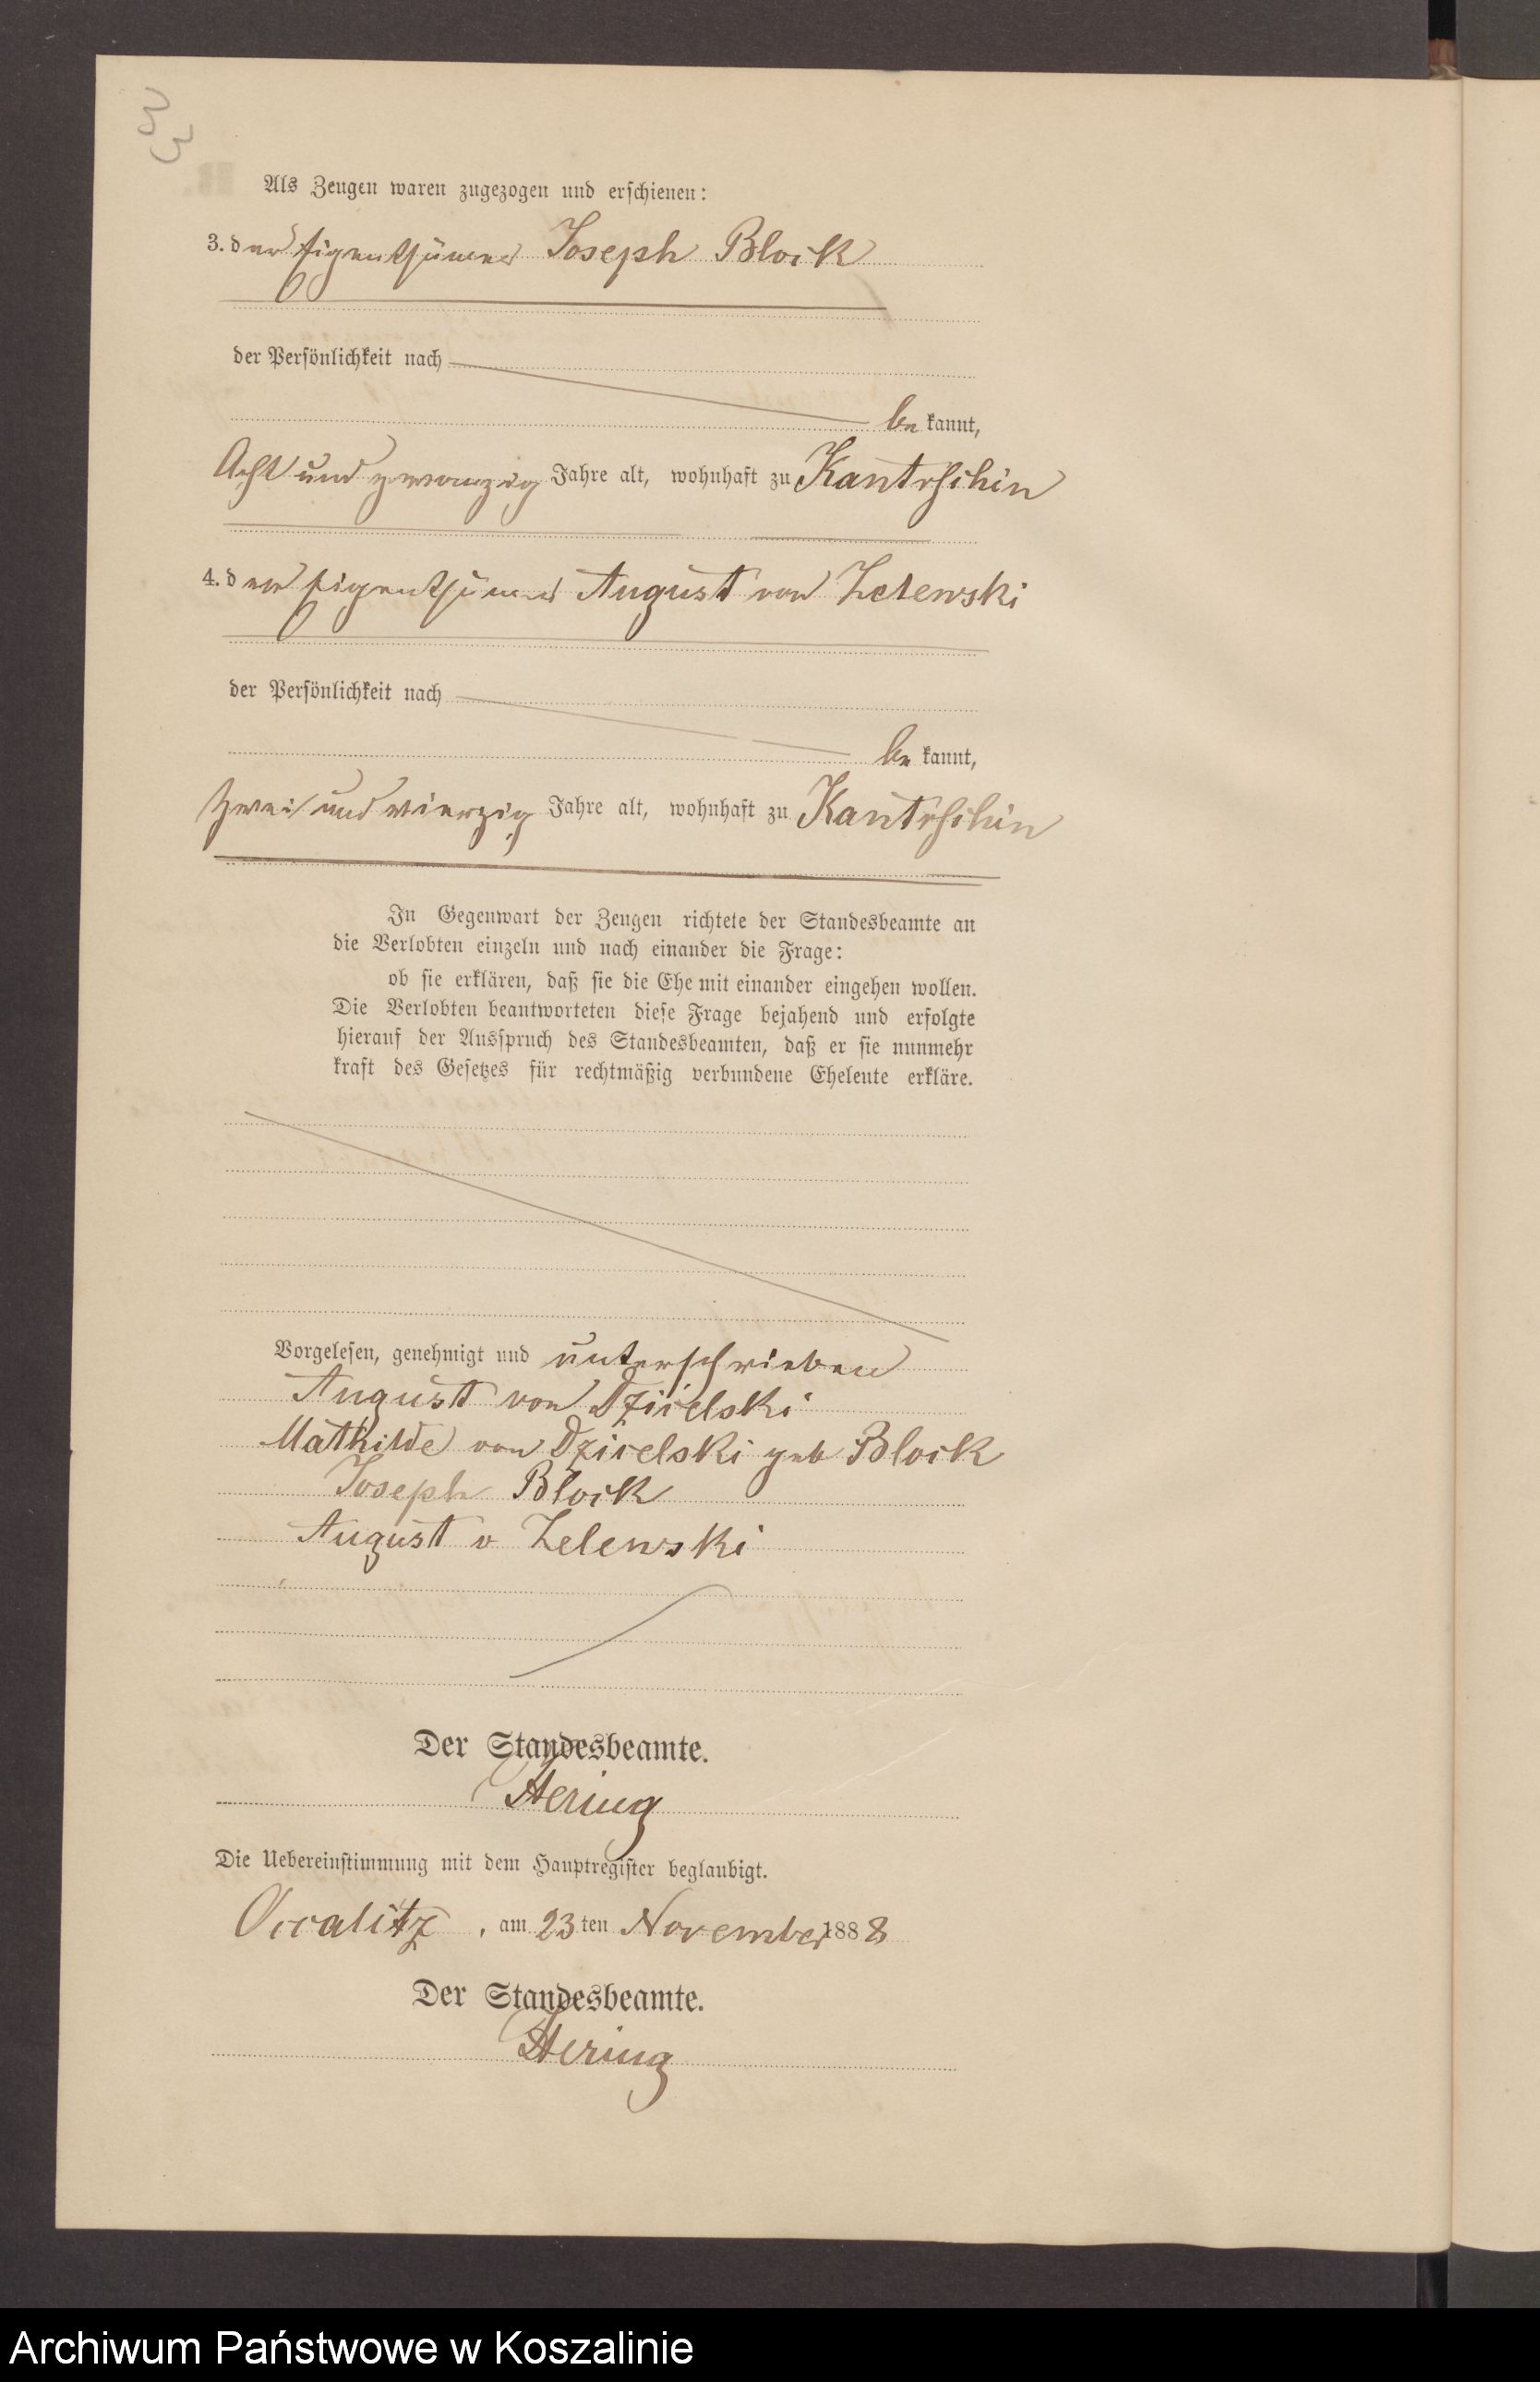 33
Als Zeugen waren zugezogen und erschienen:
3. der Eigenthümer Joseph Block
der Persönlichkeit nach
be kannt,
Acht und zwanzig Jahre alt, wohnhaft zu Kantrschin
4. der Eigenthümer August von Zelewski
der Persönlichkeit nach
be kannt,
Zwei und vierzig Jahre alt, wohnhaft zu Kantrschin
In Gegenwart der Zeugen richtete der Standesbeamte an
die Verlobten einzeln und nach einander die Frage:
ob sie erklären, daß sie die Ehe mit einander eingehen wollen.
Die Verlobten beantworteten diese Frage bejahend und erfolgte
hierauf der Ausspruch des Standesbeamten, daß er sie nunmehr
kraft des Gesetzes für rechtmäßig verbundene Eheleute erkläre.
Vorgelesen, genehmigt und unterschrieben
August von Dzicelski
Mathilde von Dzicelski geb Block
Joseph Block
August v Zelewski
Der Standesbeamte.
Hering
Die Uebereinstimmung mit dem Hauptregister beglaubigt.
Occalitz, am 23 ten November 1888
Der Standesbeamte.
Hering
Archiwum Państwowe w Koszalinie